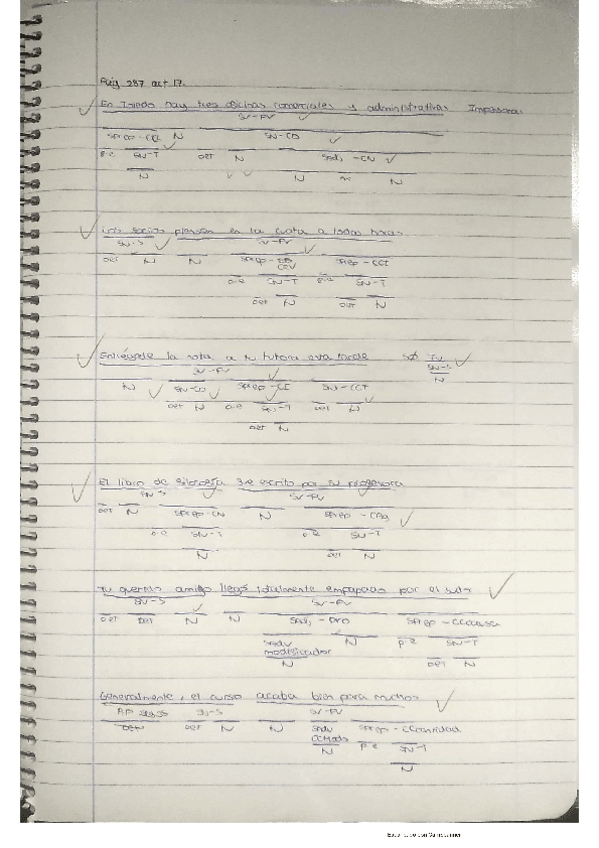 Pág 287 act 17.
En Toledo hay tres oficinas comerciales y administrativas Impersonal
SV-PV
SPrep-CCL N SN-CD
P.e SN-T det N SAdj-CN
N N nx N
Los socios piensan en la cuota a todas horas
SN-S SV-PV
det N N SPrep- CRV SPrep-CCT
P.e SN-T P.e SN-T
det N det N
Enviésele la nota a tu tutora esta tarde SØ Tú
SV-PV SN-S
N SN-CD SPrep-CI SN-CCT N
det N P.e SN-T det N
det N
El libro de filosofía fue escrito por tu profesora
SN-S SV-PV
det N SPrep-CN N SPrep-CAg
P.e SN-T P.e SN-T
N det N
Tu querido amigo llegó totalmente empapado por el sudor
SN-S SV-PV
det det N N SAdj-PVO SPrep-CCcausa
SAdv modificador N P.e SN-T
N det N
Generalmente, el curso acaba bien para muchos
SN-S SV-PV
det N N SAdv CCModo SPrep-CCantidad
N P.e SN-T
N